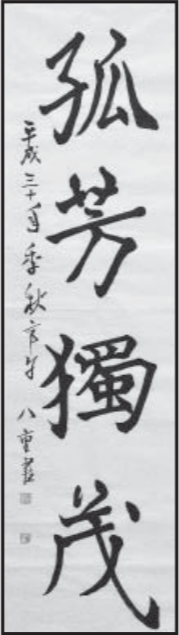 孤芳獨茂
平成三十年季秋
八重書